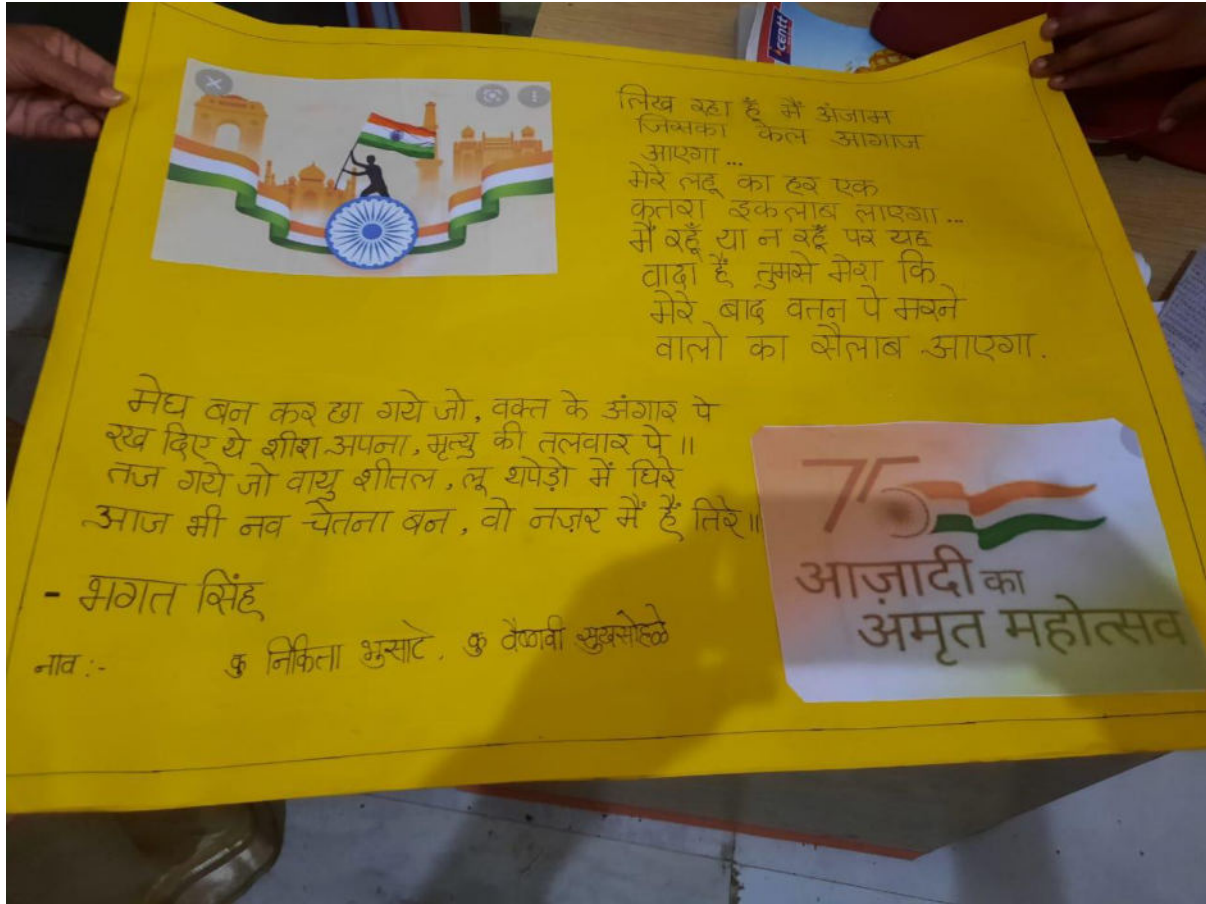 लिख रहा हूँ मैं अंजाम
जिसका कल आगाज
आएगा...
मेरे लहू का हर एक
कतरा इकलाब लाएगा...
मैं रहूँ या न रहूँ पर यह
वादा है तुमसे मेरा कि
मेरे बाद वतन पे मरने
वालो का सैलाब आएगा.
मेघ बन कर छा गये जो, वक्त के अंगार पे
रख दिए थे शीश अपना, मृत्यु की तलवार पे॥
तज गये जो वायु शीतल, लू थपेड़ो में घिरे
आज भी नव चेतना बन, वो नज़र मैं हैं तिरे॥
- भगत सिंह
नाव :- कु निकिता भुसाटे, कु वैष्णवी सुखसोहळे
75
आज़ादी का
अमृत महोत्सव